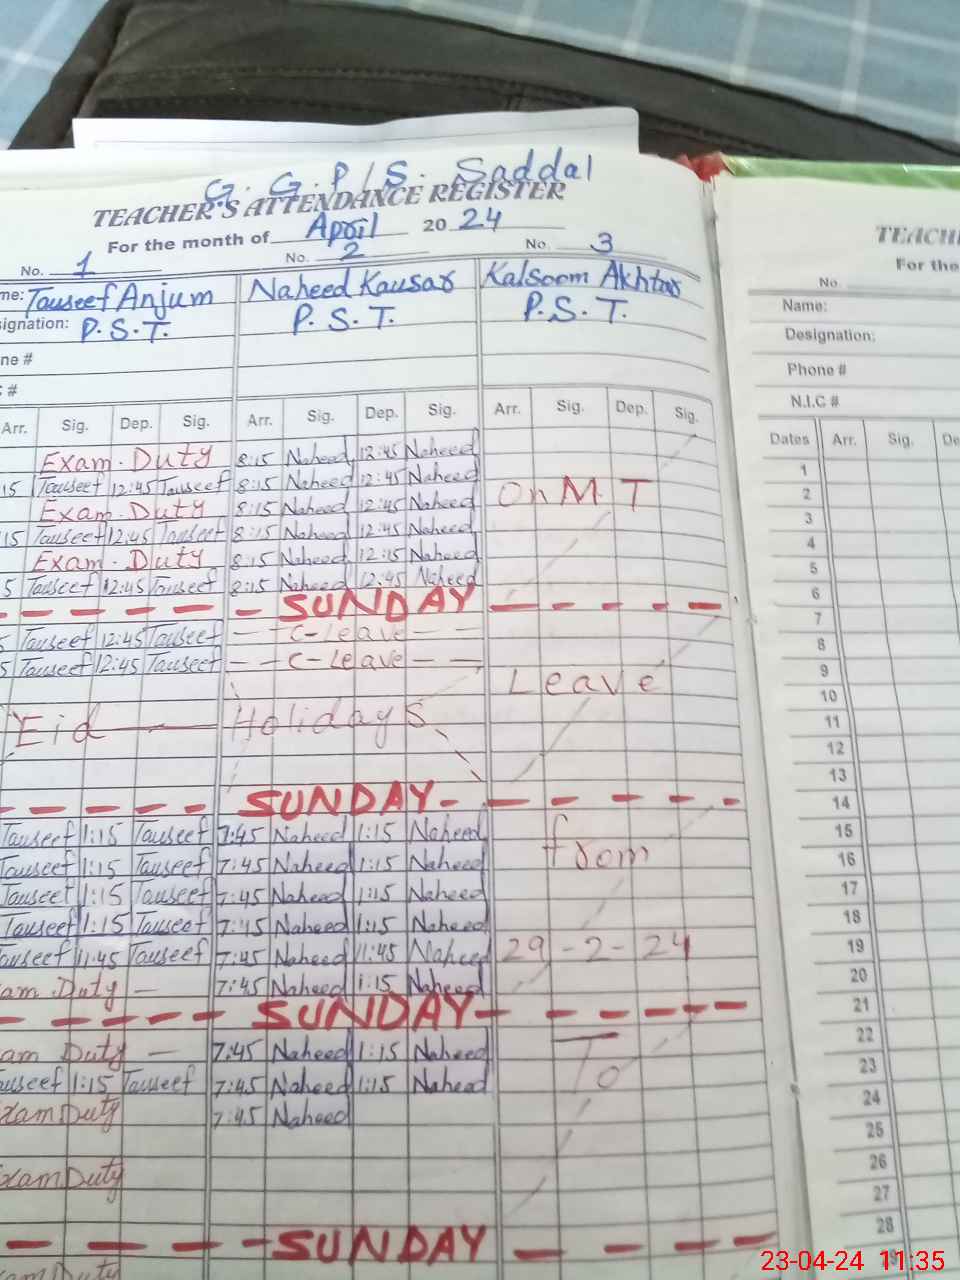 G. G. P/S. Saddal
TEACHER'S ATTENDANCE REGISTER
For the month of April 20 24
No. 1 No. 2 No. 3
me: Tauseef Anjum Naheed Kausar Kalsoom Akhtar
signation: P.S.T. P.S.T. P.S.T.
ne #
#
Arr. Sig. Dep. Sig. Arr. Sig. Dep. Sig. Arr. Sig. Dep. Sig.
Exam. Duty 8:15 Naheed 12:45 Naheed
15 Tauseef 12:45 Tauseef 8:15 Naheed 12:45 Naheed On M T
Exam. Duty 8:15 Naheed 12:45 Naheed
15 Tauseef 12:45 Tauseef 8:15 Naheed 12:45 Naheed
Exam. Duty 8:15 Naheed 12:15 Naheed
5 Tauseef 12:45 Tauseef 8:15 Naheed 12:45 Naheed
SUNDAY
5 Tauseef 12:45 Tauseef C-Leave
5 Tauseef 12:45 Tauseef C-Leave
Leave
Eid Holidays
SUNDAY
Tauseef 1:15 Tauseef 7:45 Naheed 1:15 Naheed from
Tauseef 1:15 Tauseef 7:45 Naheed 1:15 Naheed
Tauseef 1:15 Tauseef 7:45 Naheed 1:15 Naheed
Tauseef 1:15 Tauseef 7:45 Naheed 1:15 Naheed
auseef 11:45 Tauseef 7:45 Naheed 11:45 Naheed 29-2-24
am Duty — 7:45 Naheed 1:15 Naheed
SUNDAY
am Duty — 7:45 Naheed 1:15 Naheed To
useef 1:15 Tauseef 7:45 Naheed 1:15 Naheed
xam Duty 7:45 Naheed
xam Duty
SUNDAY
xam Duty
TEACH
For the
No.
Name:
Designation:
Phone #
N.I.C #
Dates Arr. Sig. De
1
2
3
4
5
6
7
8
9
10
11
12
13
14
15
16
17
18
19
20
21
22
23
24
25
26
27
28
23-04-24 11:35